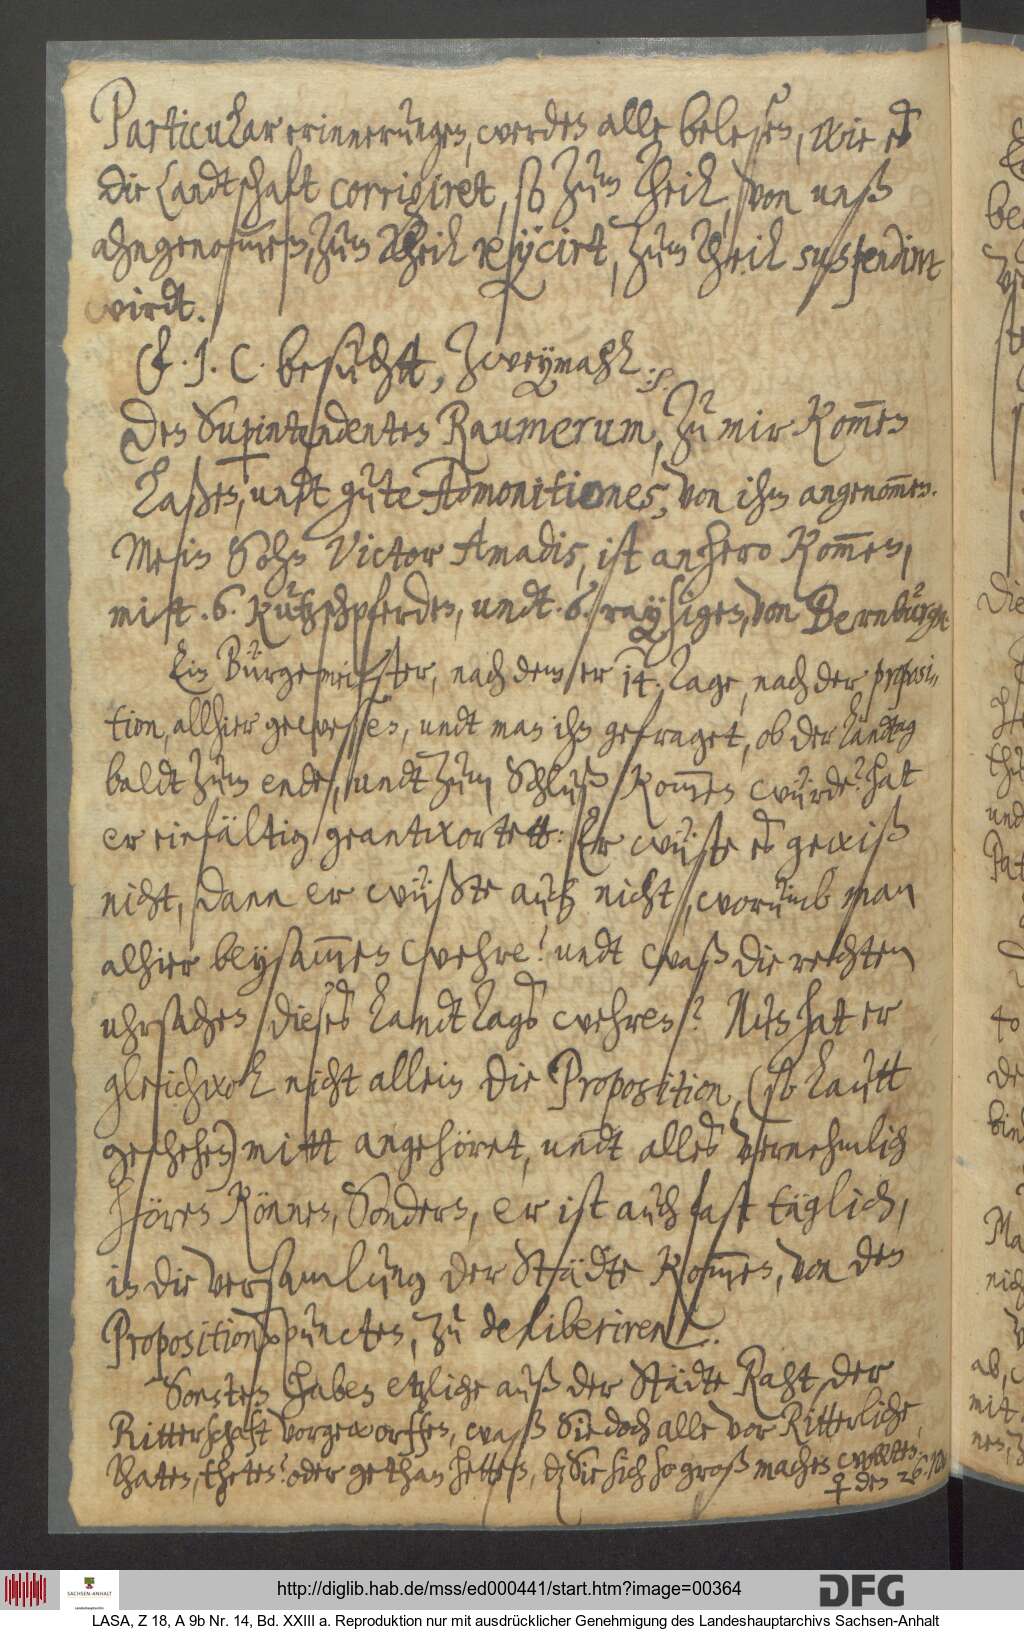 Particular erinnerungen, werden alle belesen, wie es
die Landtschaft corrigiret, so zum Theil, von unß
ahngenom̅en, zum Theil rejicirt, zum Theil suspendirt
wirdt.
besucht, zweymahl.
Den Sup̱intendenten Raumerum, zu mir kom̅en
laßen, undt gute Admonitiones, von ihm angenom̅en.
Mein Sohn Victor Amadis, ist anhero kom̅en,
mitt .6. kutzschpferden, undt .6. raysigen, von Bernburgk
Ein Burgemeister, nach dem er 14. Tage, nach der proposi„
tion, allhier gewesen, undt man ihn gefraget, ob der Landtag
baldt zum ende, undt zum Schluß kom̅en würde? hat
er einfältig geantwortett: Er wüste es gewiß
nicht, dann er wüßte auch nicht, worumb man
alhier beysam̅en wehre? undt waß die rechten
uhrsachen dieses LandtTags wehren? Nun hat er
gleichwol nicht allein die Proposition, (so lautt
geschehen) mitt angehöret, undt alles vernehmlich
hören können, Sondern, er ist auch fast täglich,
in die versamlung der Städte kom̅en, von den
Propositionspuncten, zu deliberiren.
Sonsten haben etzliche auß der Städte Raht, der
Ritterschaft vorgeworffen, waß Sie doch alle vor Ritterliche,
Thaten, theten? oder gethan hetten, dz Sie sich so groß machen wollten.
♀ den 26.
http://diglib.hab.de/mss/ed000441/start.htm?image=00364
SACHSEN-ANHALT
DFG
LASA, Z 18, A 9b Nr. 14, Bd. XXIII a. Reproduktion nur mit ausdrücklicher Genehmigung des Landeshauptarchivs Sachsen-Anhalt